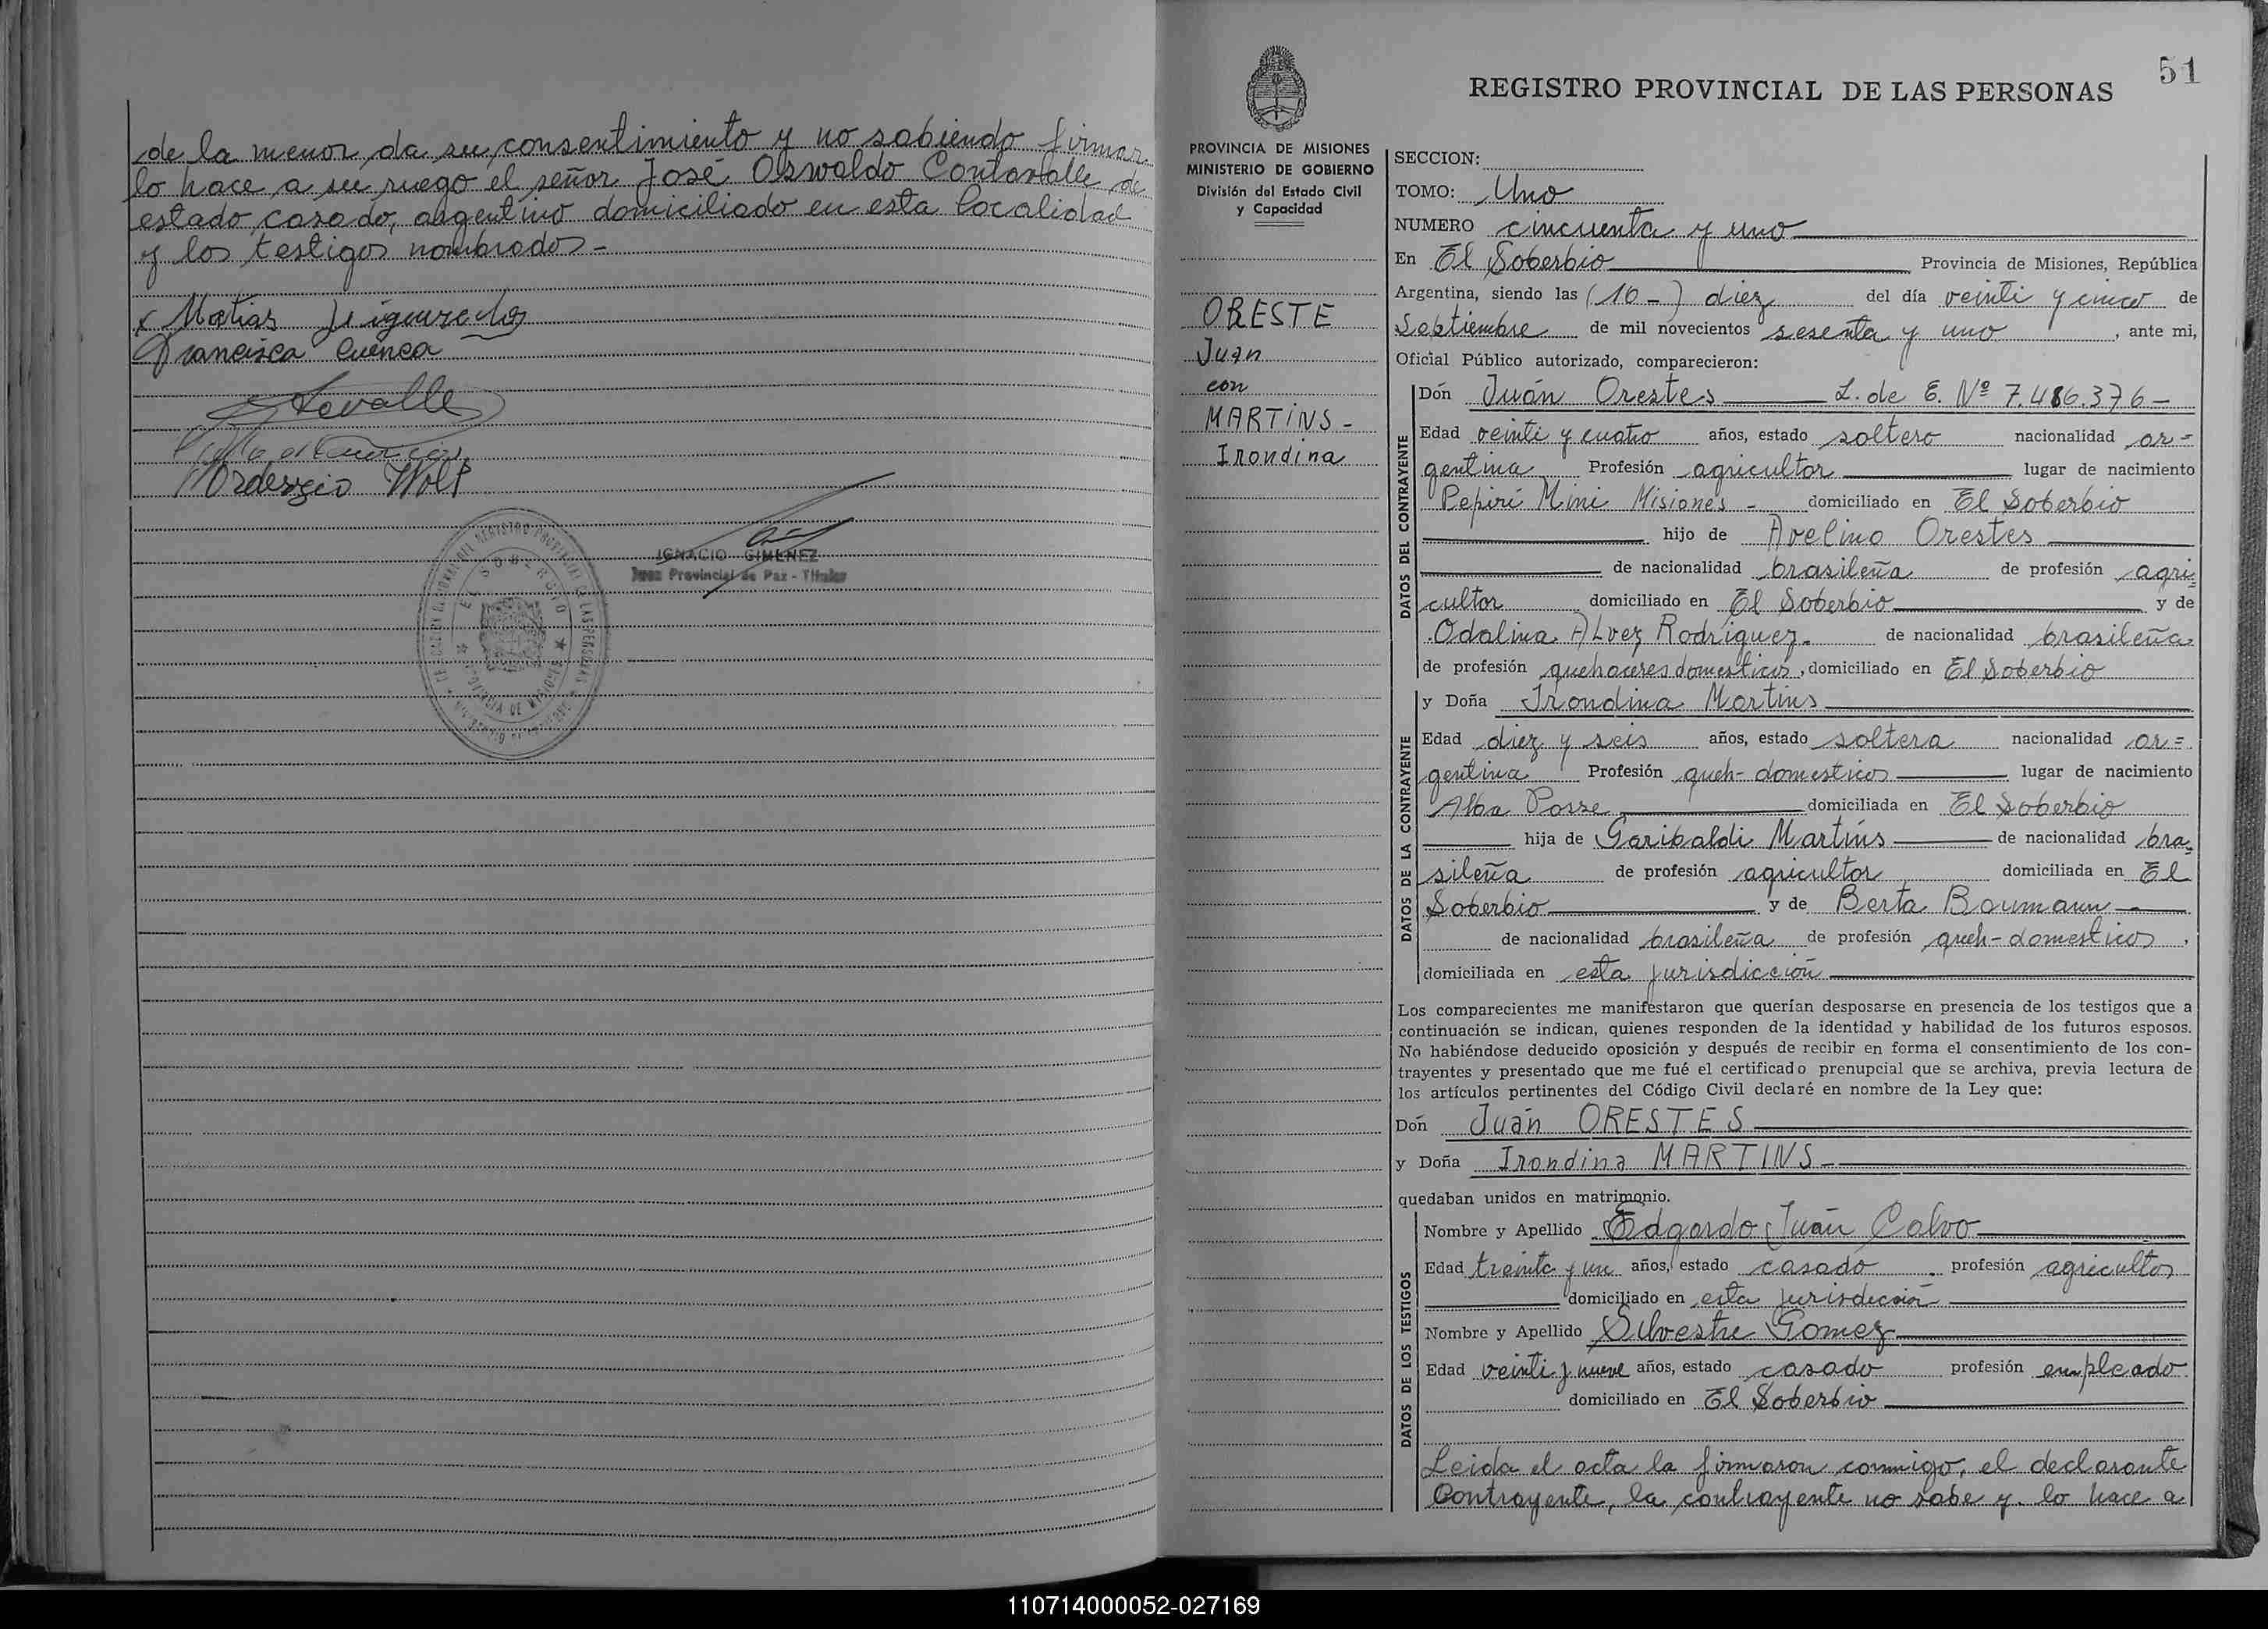 de la menor da su consentimiento y no sabiendo firmar
lo hace a su ruego el señor José Oswaldo de
estado casado, argentino domiciliado en esta localidad
y los testigos nombrados -
x Matias
Francisca Cuenca
Wolf
IGNACIO GIMENEZ
Juez Provincial de Paz - Titular
EL SOBERBIO
51
REGISTRO PROVINCIAL DE LAS PERSONAS
PROVINCIA DE MISIONES
MINISTERIO DE GOBIERNO
División del Estado Civil
y Capacidad
ORESTE
Juan
con
MARTINS -
Irondina
SECCION:
TOMO: Uno
NUMERO cincuenta y uno
En El Soberbio Provincia de Misiones, República
Argentina, siendo las (10-) diez del día veinti y cinco de
Septiembre de mil novecientos sesenta y uno, ante mi,
Oficial Público autorizado, comparecieron:
DATOS DEL CONTRAYENTE
Dón Juán Orestes L. de E. Nº 7.486.376-
Edad veinti y cuatro años, estado soltero nacionalidad ar=
gentina Profesión agricultor lugar de nacimiento
Pepirí Mini Misiones - domiciliado en El Soberbio
hijo de Avelino Orestes
de nacionalidad brasileña de profesión agri=
cultor domiciliado en El Soberbio y de
Odalina ALvez Rodriguez. de nacionalidad brasileña
de profesión quehaceres domesticos, domiciliado en El Soberbio
DATOS DE LA CONTRAYENTE
y Doña Irondina Martins
Edad diez y seis años, estado soltera nacionalidad ar=
gentina Profesión queh- domesticos lugar de nacimiento
Alba Posse domiciliada en El Soberbio
hija de Garibaldi Martins de nacionalidad bra=
sileña de profesión agricultor domiciliada en El
Soberbio y de Berta Baumann
de nacionalidad brasileña de profesión queh-domesticos,
domiciliada en esta jurisdicción
Los comparecientes me manifestaron que querían desposarse en presencia de los testigos que a
continuación se indican, quienes responden de la identidad y habilidad de los futuros esposos.
No habiéndose deducido oposición y después de recibir en forma el consentimiento de los con-
trayentes y presentado que me fué el certificado prenupcial que se archiva, previa lectura de
los artículos pertinentes del Código Civil declaré en nombre de la Ley que:
Don Juán ORESTES
y Doña Irondina MARTINS
quedaban unidos en matrimonio.
DATOS DE LOS TESTIGOS
Nombre y Apellido Edgardo Juan Calvo
Edad treinta y un años, estado casado. profesión agricultor
domiciliado en esta jurisdicción
Nombre y Apellido Silvestre Gomez
Edad veinti y nueve años, estado casado profesión empleado
domiciliado en El Soberbio
Leida el acta la firmaron conmigo, el declarante
Contrayente, la contrayente no sabe y lo hace a
110714000052-027169